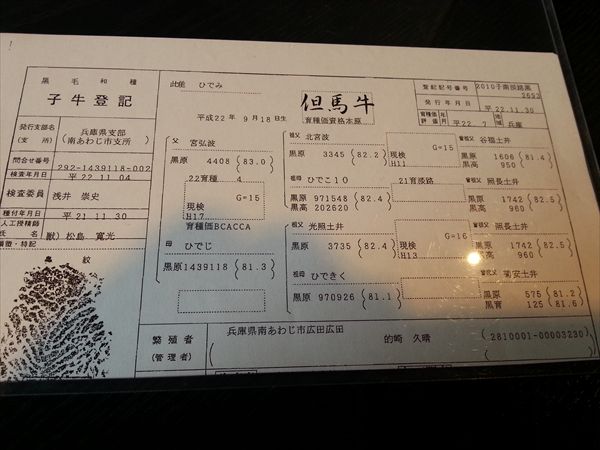 黒毛和種
子牛登記
発行支部名
(支所)
兵庫県支部
南あわじ市支所
問合せ番号
292-1439118-002
検査年月日
平 22.11.04
検査委員
浅井 崇史
種付年月日
平 21.11.30
人工授精師
氏名
獣) 松島 寛光
特記
鼻紋
此雌 ひでみ
平成22年 9月18日生
但馬牛
育種価資格本原
登記記号番号
2010子南淡路黒
2653
発行年月日
平 22.11.30
育種価
評価
年月
平 22.7
地域
兵庫
父 宮弘波
黒原 4408 (83.0)
22育種 4
G=15
現検
H17
育種価BCACCA
母 ひでじ
黒原1439118 (81.3)
祖父 北宮波
黒原 3345 (82.2)
G=15
現検
H11
祖母 ひでこ10
21育淡路
黒原 971548 (82.4)
黒高 202620
祖父 光照土井
黒原 3735 (82.4)
G=16
現検
H13
祖母 ひできく
黒原 970926 (81.1)
曽祖父 谷福土井
黒原 1606 (81.4)
黒高 950
曽祖父 照長土井
黒原 1742 (82.5)
黒高 960
曽祖父 照長土井
黒原 1742 (82.5)
黒高 960
曽祖父 菊安土井
黒原 575 (81.2)
黒育 125 (81.6)
繁殖者
(管理者)
兵庫県南あわじ市広田広田
的崎 久晴
(2810001-00003230)